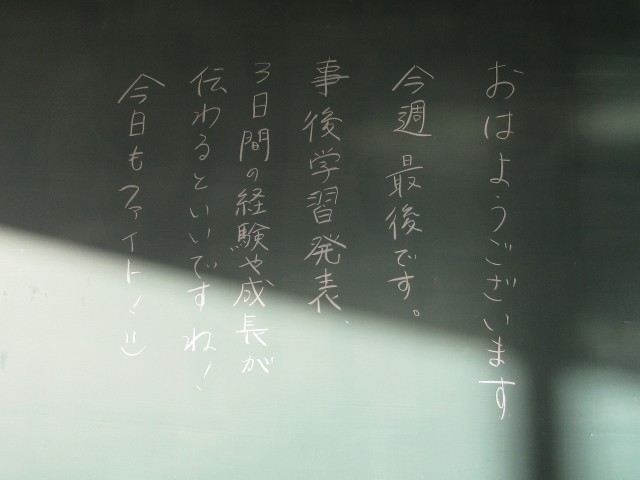 おはようございます
今週最後です。
事後学習発表、
3日間の経験や成長が
伝わるといいですね!
今日もファイト!!